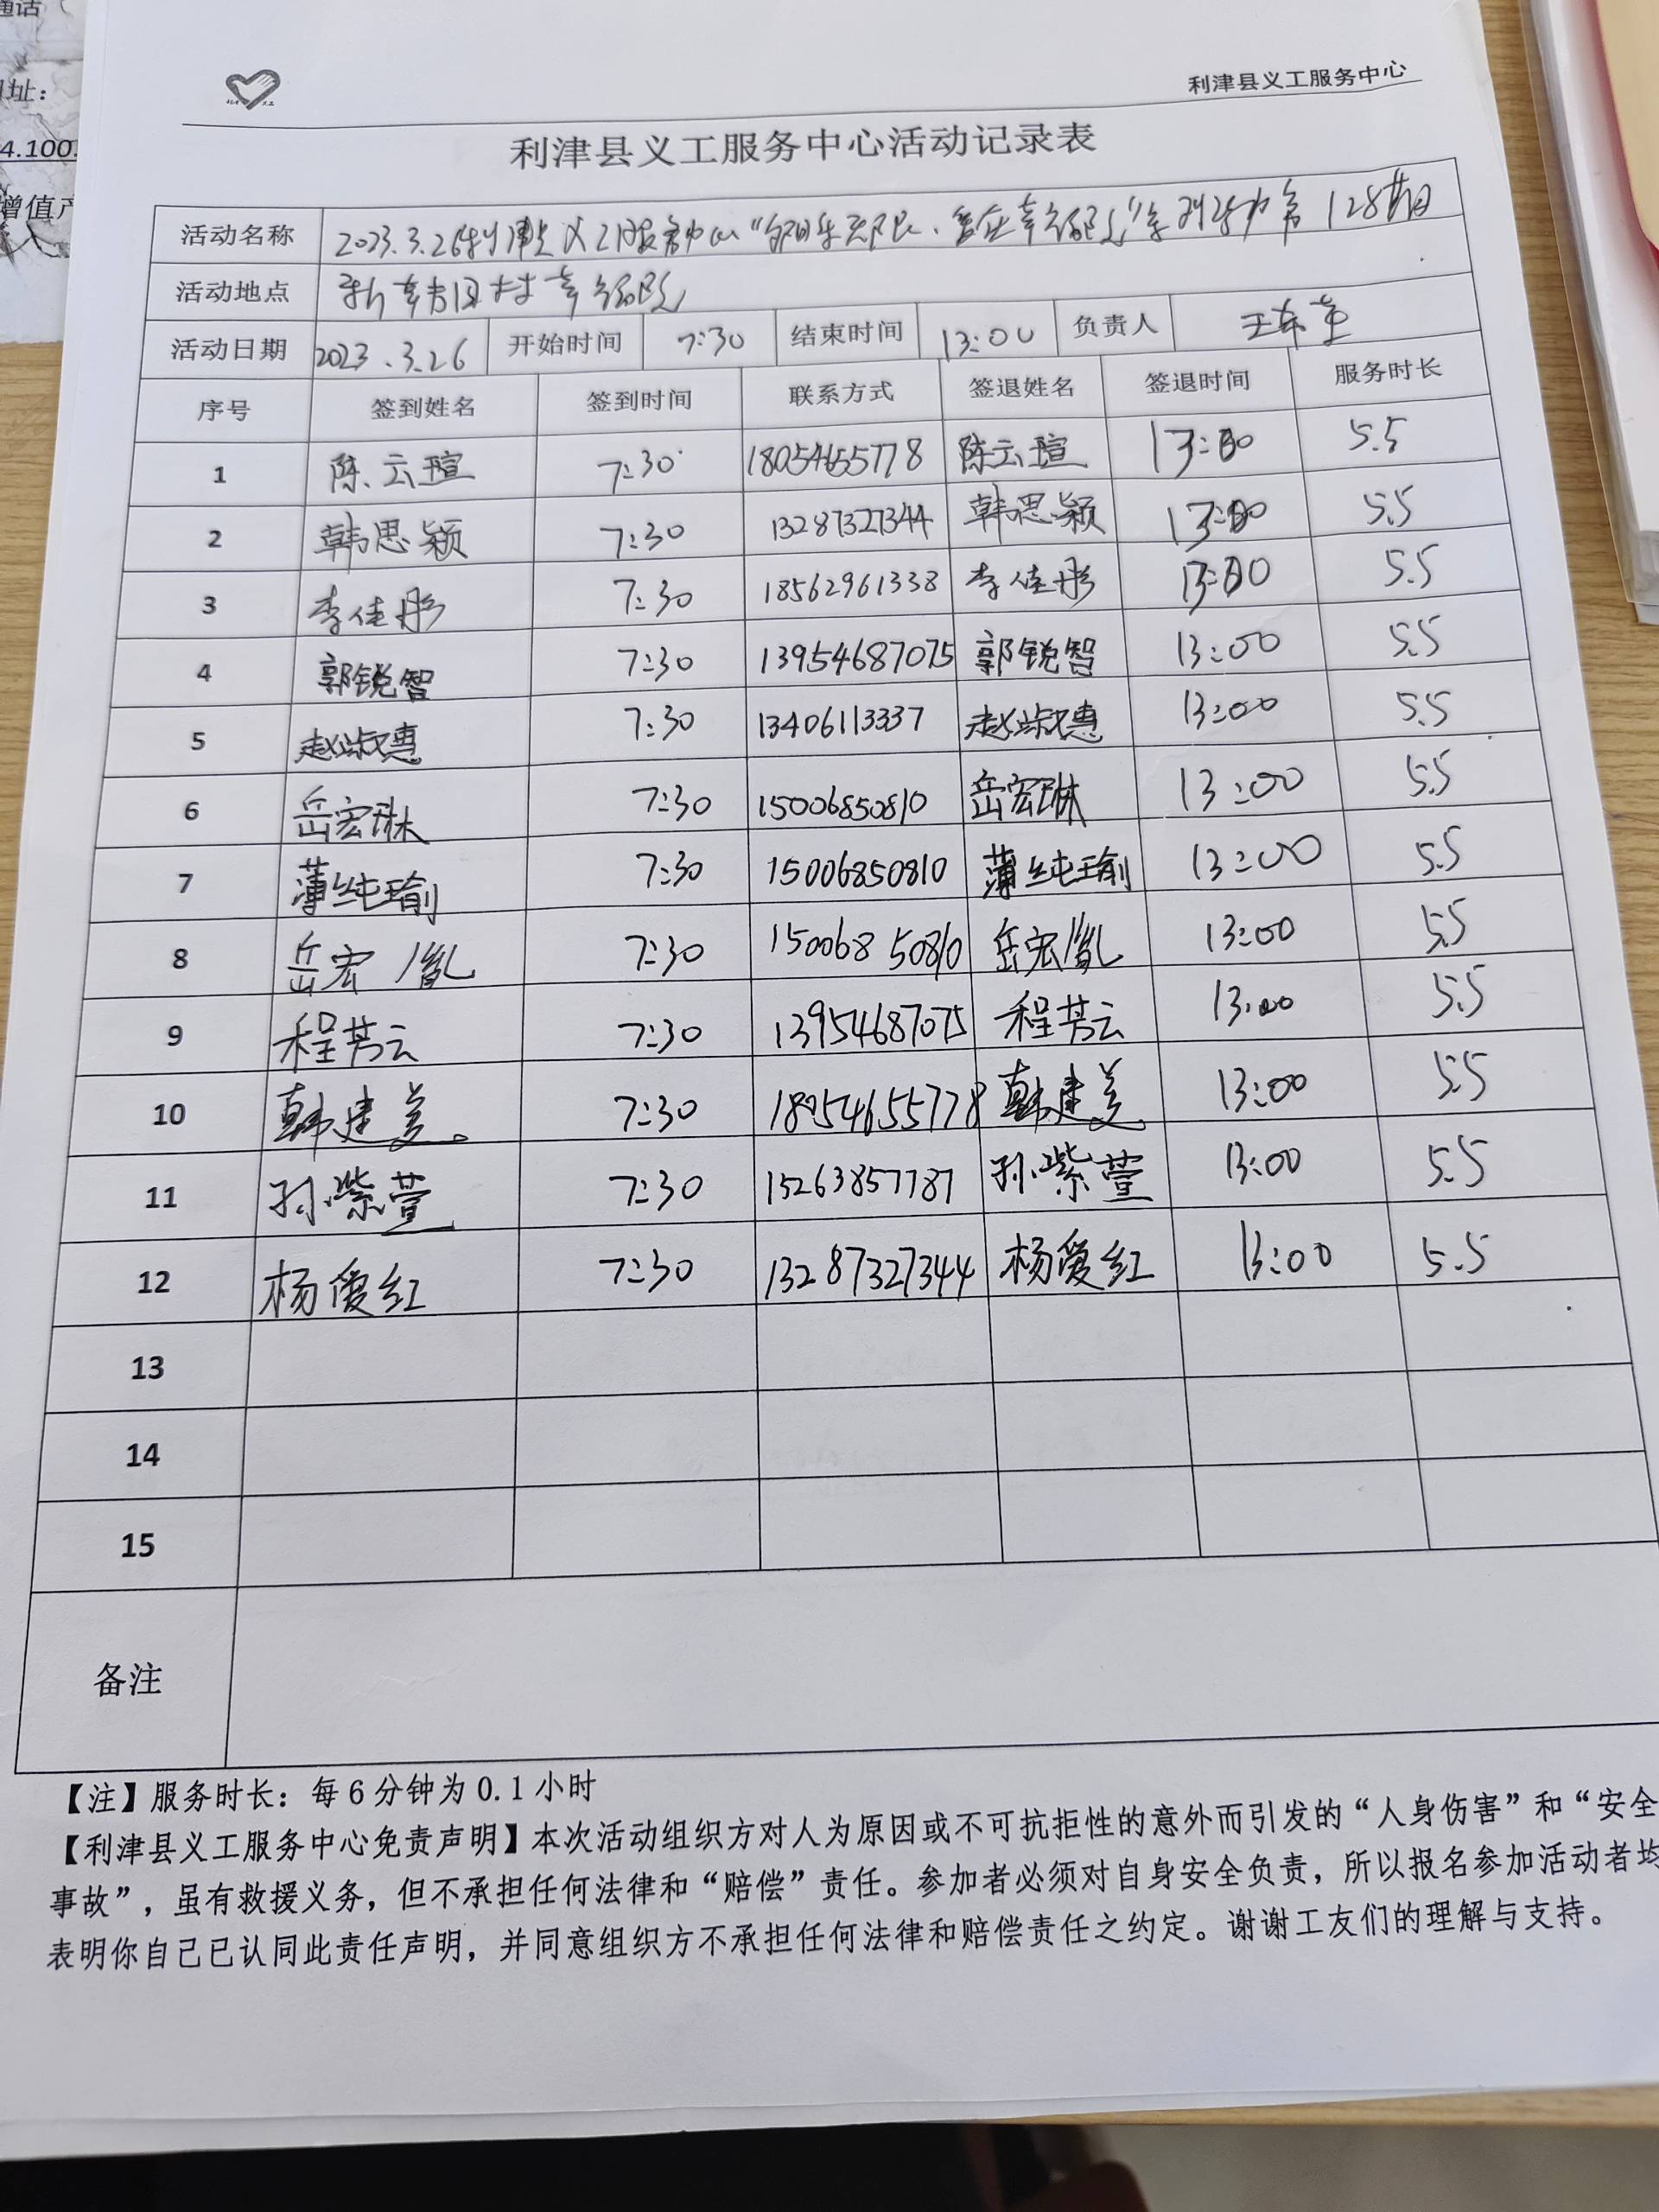 通话
址：
4.100.
增值产
利津县义工服务中心
利津县义工服务中心活动记录表
活动名称 2023.3.26利津县义工服务中心“夕阳乐无限、爱在幸福院”系列活动第128期
活动地点 村幸福院
活动日期 2023.3.26 开始时间 7:30 结束时间 13:00 负责人 王
序号 签到姓名 签到时间 联系方式 签退姓名 签退时间 服务时长
1 陈云瑄 7:30 18054655778 陈云瑄 13:00 5.5
2 韩思颖 7:30 13287327344 韩思颖 13:00 5.5
3 李佳彤 7:30 18562961338 李佳彤 13:00 5.5
4 郭锐智 7:30 13954687075 郭锐智 13:00 5.5
5 赵淑惠 7:30 13406113337 赵淑惠 13:00 5.5
6 岳宏琳 7:30 15006850810 岳宏琳 13:00 5.5
7 薄纯瑜 7:30 15006850810 薄纯瑜 13:00 5.5
8 岳宏胤 7:30 15006850810 岳宏胤 13:00 5.5
9 程芳云 7:30 13954687075 程芳云 13:00 5.5
10 韩建美 7:30 18054655778 韩建美 13:00 5.5
11 孙紫萱 7:30 15263857787 孙紫萱 13:00 5.5
12 杨爱红 7:30 13287327344 杨爱红 13:00 5.5
13
14
15
备注
【注】服务时长：每6分钟为0.1小时
【利津县义工服务中心免责声明】本次活动组织方对人为原因或不可抗拒性的意外而引发的“人身伤害”和“安全
事故”，虽有救援义务，但不承担任何法律和“赔偿”责任。参加者必须对自身安全负责，所以报名参加活动者均
表明你自己已认同此责任声明，并同意组织方不承担任何法律和赔偿责任之约定。谢谢工友们的理解与支持。